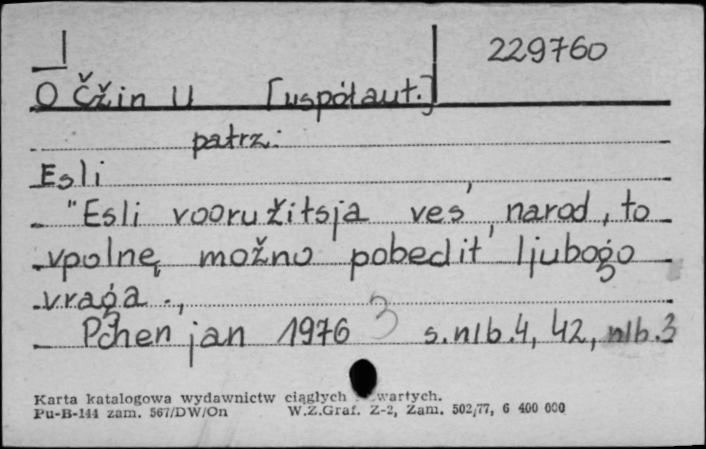 229760
O Čžin U [współaut.]
patrz:
Esli
"Esli vooružitsja ves', narod, to
vpolnę možno pobedit' ljubogo
vraga.,
Pchen jan 1976 3 s.nlb.4, 42, nlb.3
Karta katalogowa wydawnictw ciągłych wartych.
Pu-B-144 zam. 567/DW/On W.Z.Graf. Z-2, Zam. 502/77, 6 400 000